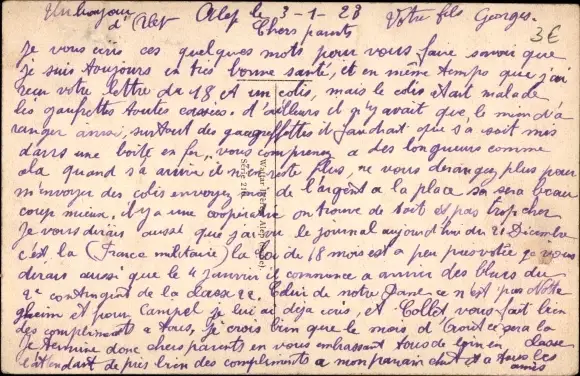 Un bonjour d'Alep
Alep le 3-1-23
Votre fils Georges.
3€
Chers parents
Je vous écris ces quelques mots pour vous faire savoir que
je suis toujours en très bonne santé, et en même temps que j'ai
reçu votre lettre du 18 et un colis, mais le colis était malade
les gaufrettes toutes cassées. d'ailleurs il n'y avait que
ranger aussi, surtout des il faudrait que sa soit mis
dans une boite en fer, vous comprenez a des longueurs comme
cela quand sa arrive il n'en reste plus, ne vous derangez plus pour
m'envoyer des colis envoyez moi de l'argent a la place sa sera beau
coup mieux, il y a une coopérative on trouve de tout et pas trop cher
Je vous dirais aussi que j'ai vu le journal aujourd'hui du 21 Décembre
c'est la (France militaire) la loi de 18 mois est a peu pres votée je vous
dirais aussi que le 4 Janvier il commence a arriver des bleus du
2e contingent de la classe 22. Celui de notre ce n'est pas
et pour je lui ai déja écris, et Collet vous fait bien
des compliments a tous, je crois bien que le mois d'Aout ce sera la
classe
Je termine donc chers parents en vous embrassant tous de loin en
attendant de près bien des compliments a mon parrain et a tous les
amis